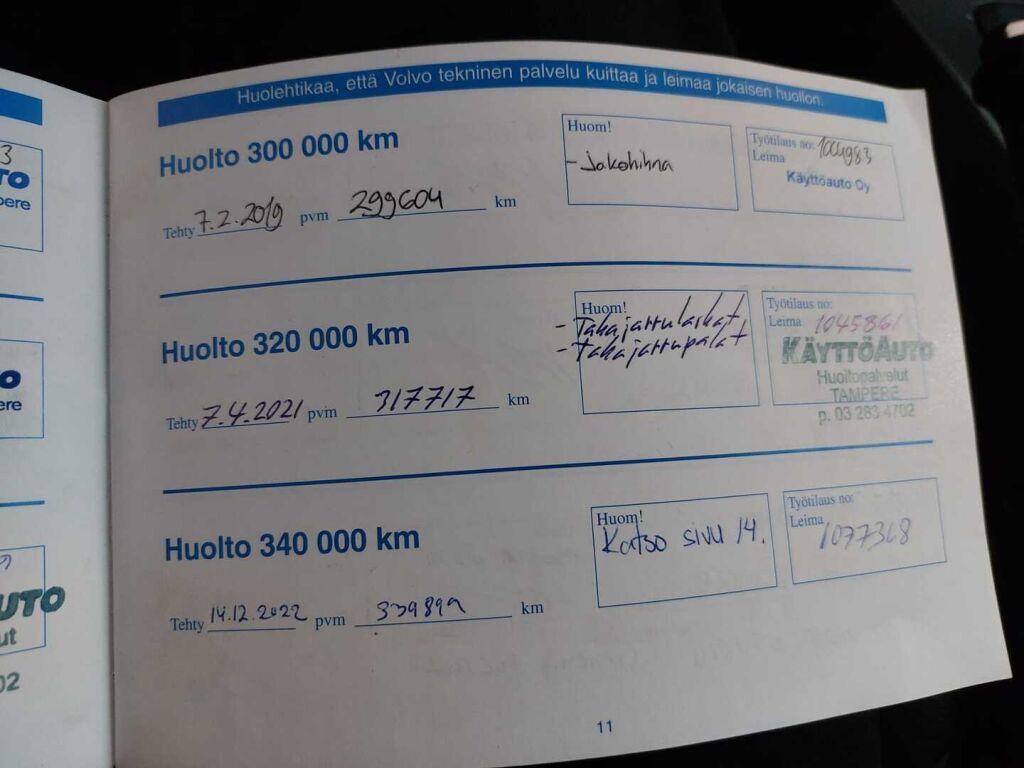 Huolehtikaa, että Volvo tekninen palvelu kuittaa ja leimaa jokaisen huollon.
Huolto 300 000 km
Tehty 7.2.2019 pvm 299604 km
Huom!
- Jakohihna
Työtilaus no: 1004983
Leima
Käyttöauto Oy
Huolto 320 000 km
Tehty 7.4.2021 pvm 317717 km
Huom!
- Takajarrulaikat
- Takajarrupalat
Työtilaus no:
Leima 1045861
KÄYTTÖAUTO
Huoltopalvelut
TAMPERE
p. 03 283 4702
Huolto 340 000 km
Tehty 14.12.2022 pvm 339899 km
Huom!
Katso sivu 14.
Työtilaus no:
Leima
1077348
11